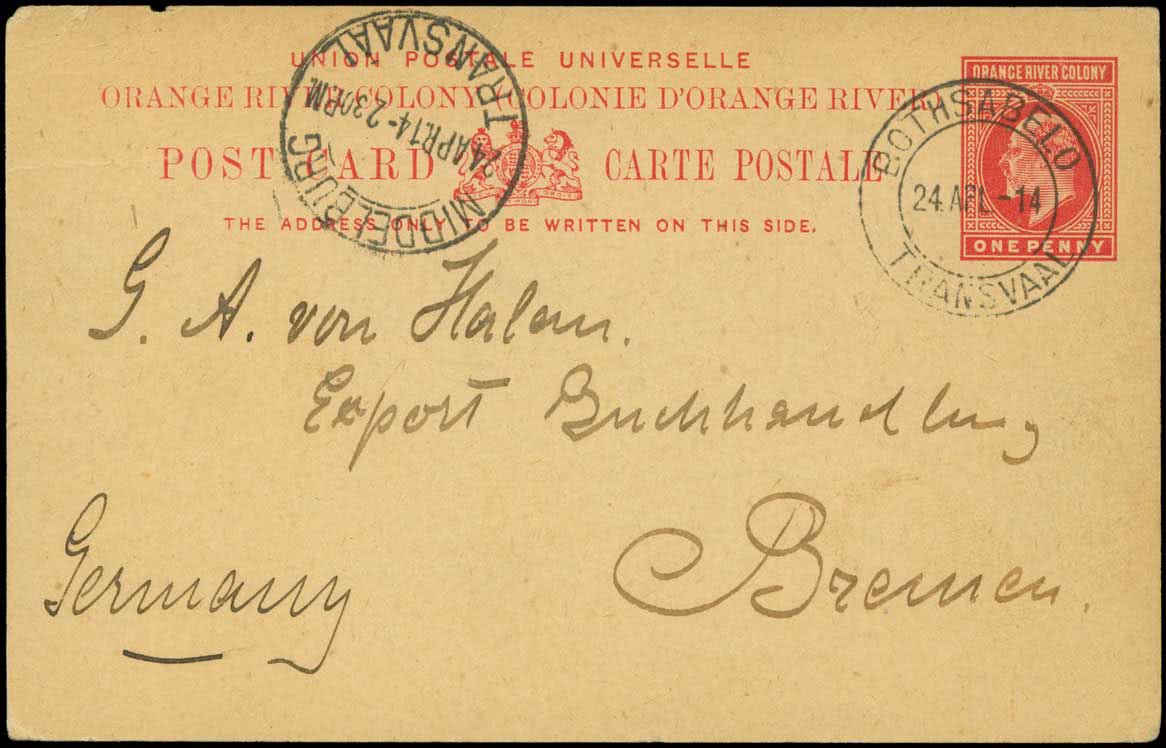 UNION POSTALE UNIVERSELLE
ORANGE RIVER COLONY (COLONIE D'ORANGE RIVER)
POST CARD CARTE POSTALE
THE ADDRESS ONLY TO BE WRITTEN ON THIS SIDE.
ORANGE RIVER COLONY
ONE PENNY
MIDDELBURG
24 APR 14 - 2 30 PM
TRANSVAAL
BOTHSABELO
24. APL - 14
TRANSVAAL
G. A. von Halem.
Export Buchhandlung
Bremen.
Germany